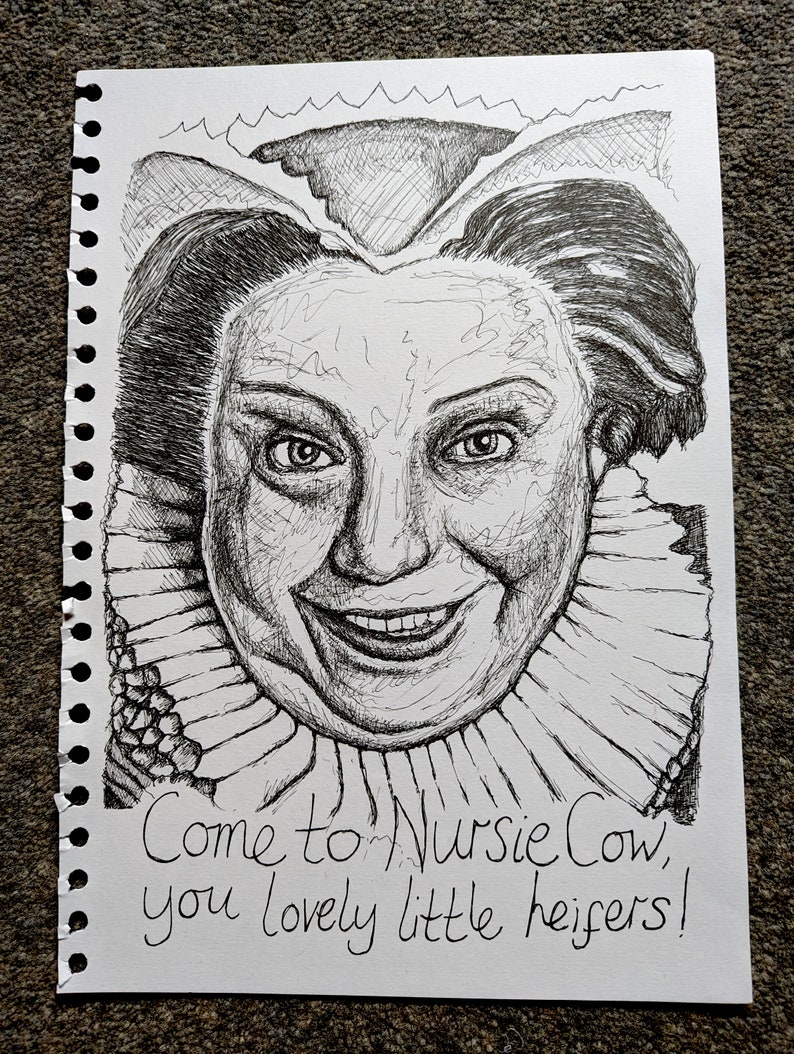 Come to Nursie Cow,
you lovely little heifers!